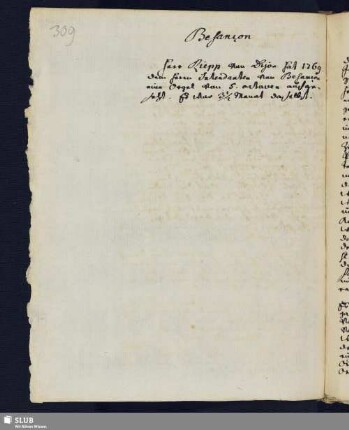 309
Besançon
Herr Riepp von Dijon hat 1769
dem Herrn Intendanten von Besançon
eine Orgel von 5. octaven aufge-
setzt. Er war 3½ Monat daselbst.
SLUB
Wir führen Wissen.